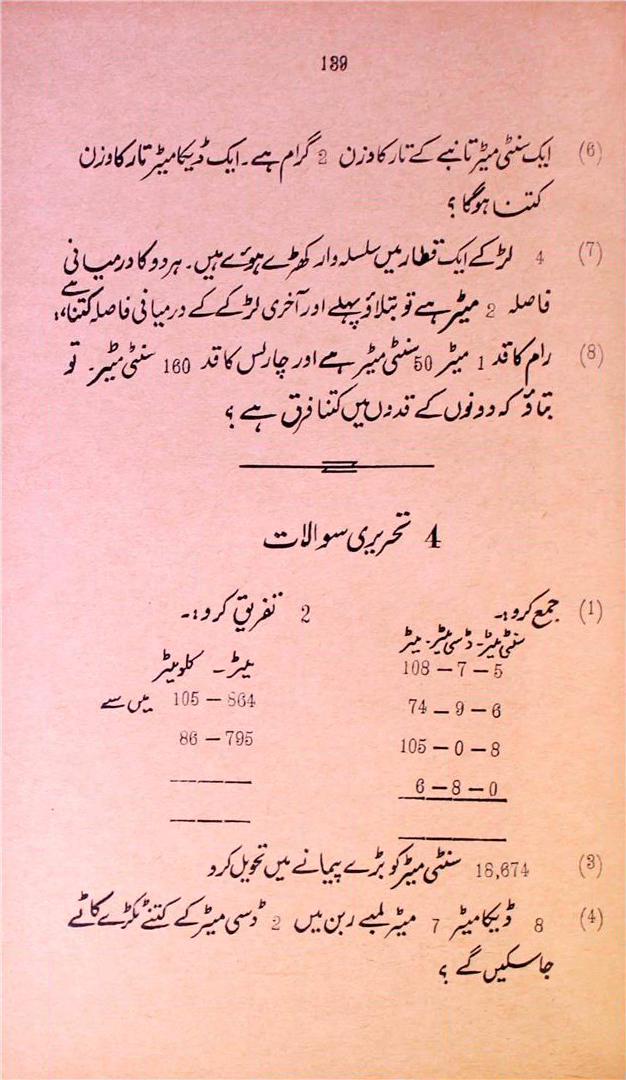 139
(6) ایک سنٹی میٹر تانبے کے تار کا وزن 2 گرام ہے۔ ایک ڈیکا میٹر تار کا وزن
کتنا ہوگا ؟
(7) 4 لڑکے ایک قطار میں سلسلہ وار کھڑے ہوئے ہیں۔ ہر دو کا درمیانی
فاصلہ 2 میٹر ہے تو بتلاؤ پہلے اور آخری لڑکے کے درمیانی فاصلہ کتنا ہے
(8) رام کا قد 1 میٹر 50 سنٹی میٹر ہے اور چارلس کا قد 160 سنٹی میٹر۔ تو
بتاؤ کہ دونوں کے قدوں میں کتنا فرق ہے ؟
4 تحریری سوالات
(1) جمع کرو:۔
سنٹی میٹر۔ ڈسی میٹر۔ میٹر
108 – 7 – 5
74 – 9 – 6
105 – 0 – 8
6 – 8 – 0
2 تفریق کرو:۔
میٹر۔ کلومیٹر
105 – 864 میں سے
86 – 795
(3) 16,674 سنٹی میٹر کو بڑے پیمانے میں تحویل کرو
(4) 8 ڈیکا میٹر 7 میٹر لمبے ربن میں 2 ڈسی میٹر کے کتنے ٹکڑے کاٹے
جاسکیں گے ؟